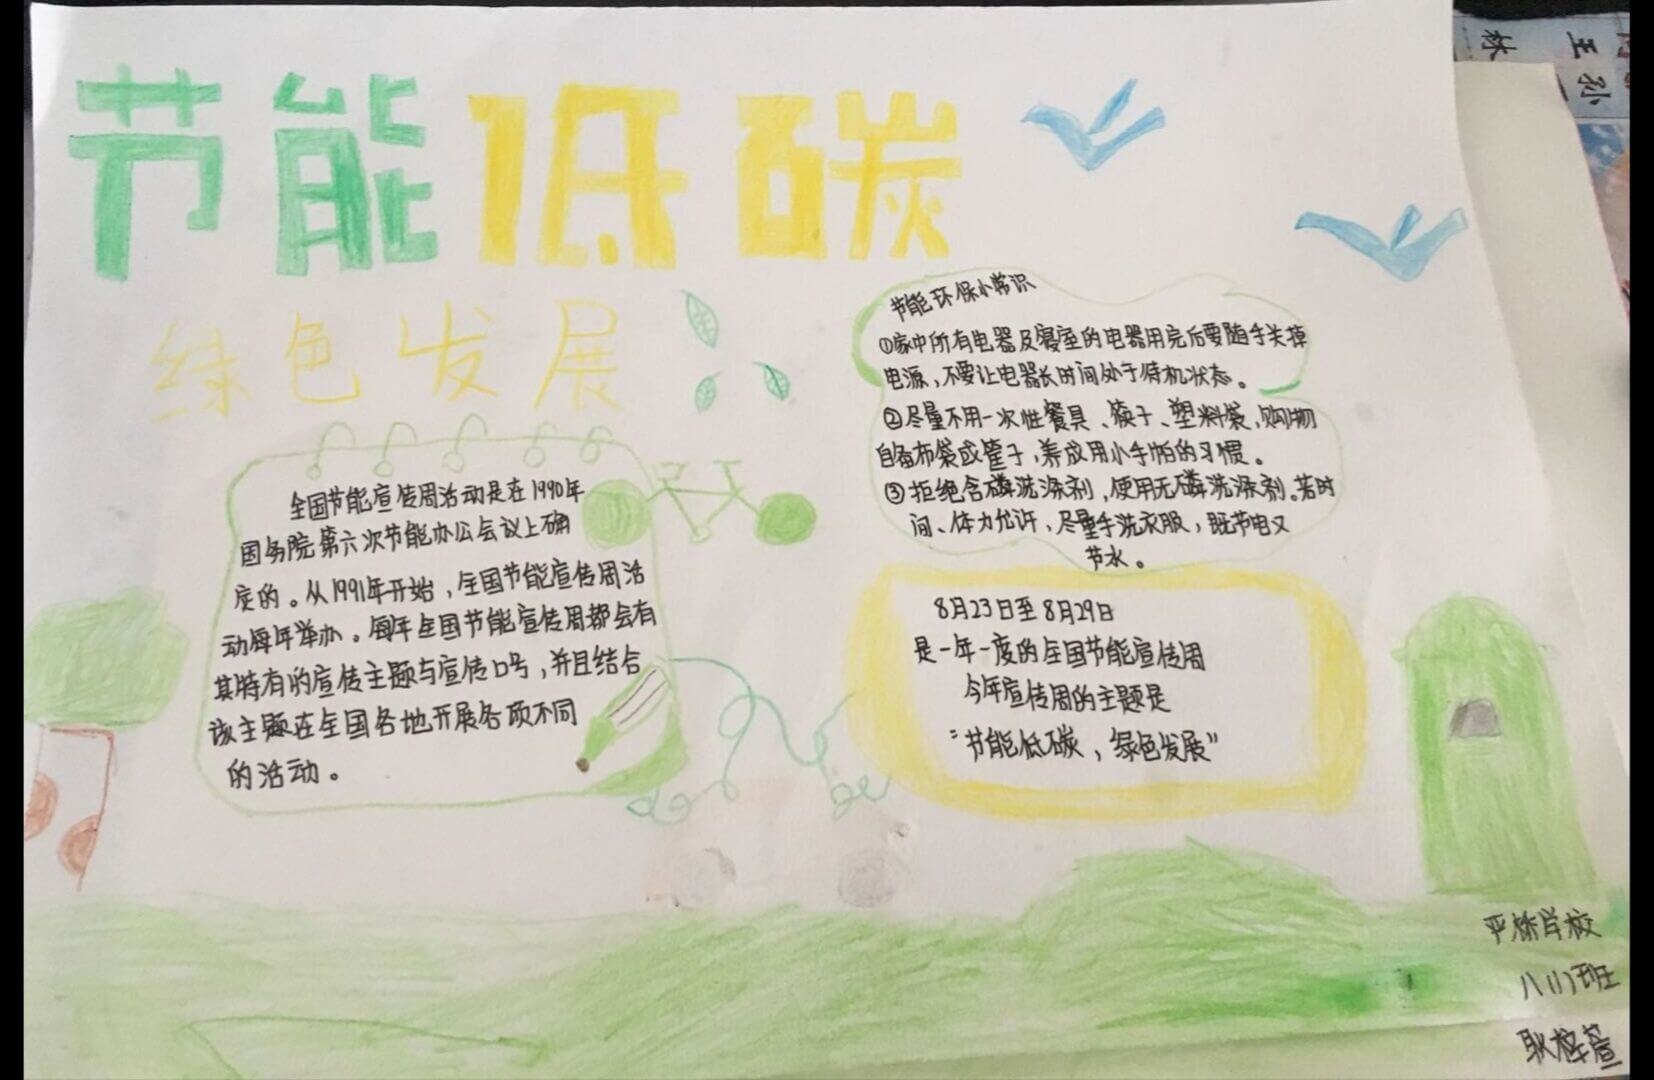 节能低碳
绿色发展
全国节能宣传周活动是在1990年
国务院第六次节能办公会议上确
度的。从1991年开始，全国节能宣传周活
动每年举办。每年全国节能宣传周都会有
其特有的宣传主题与宣传口号，并且结合
该主题在全国各地开展各项不同
的活动。
节能环保小常识
①家中所有电器及寝室的电器用完后要随手关掉
电源，不要让电器长时间处于待机状态。
②尽量不用一次性餐具、筷子、塑料袋，购物
自备布袋或篮子，养成用小手帕的习惯。
③拒绝含磷洗涤剂，使用无磷洗涤剂。若时
间、体力允许，尽量手洗衣服，既节电又
节水。
8月23日至8月29日
是一年一度的全国节能宣传周
今年宣传周的主题是
“节能低碳，绿色发展”
学校
八(1)班
耿梓萱
林
王
孙